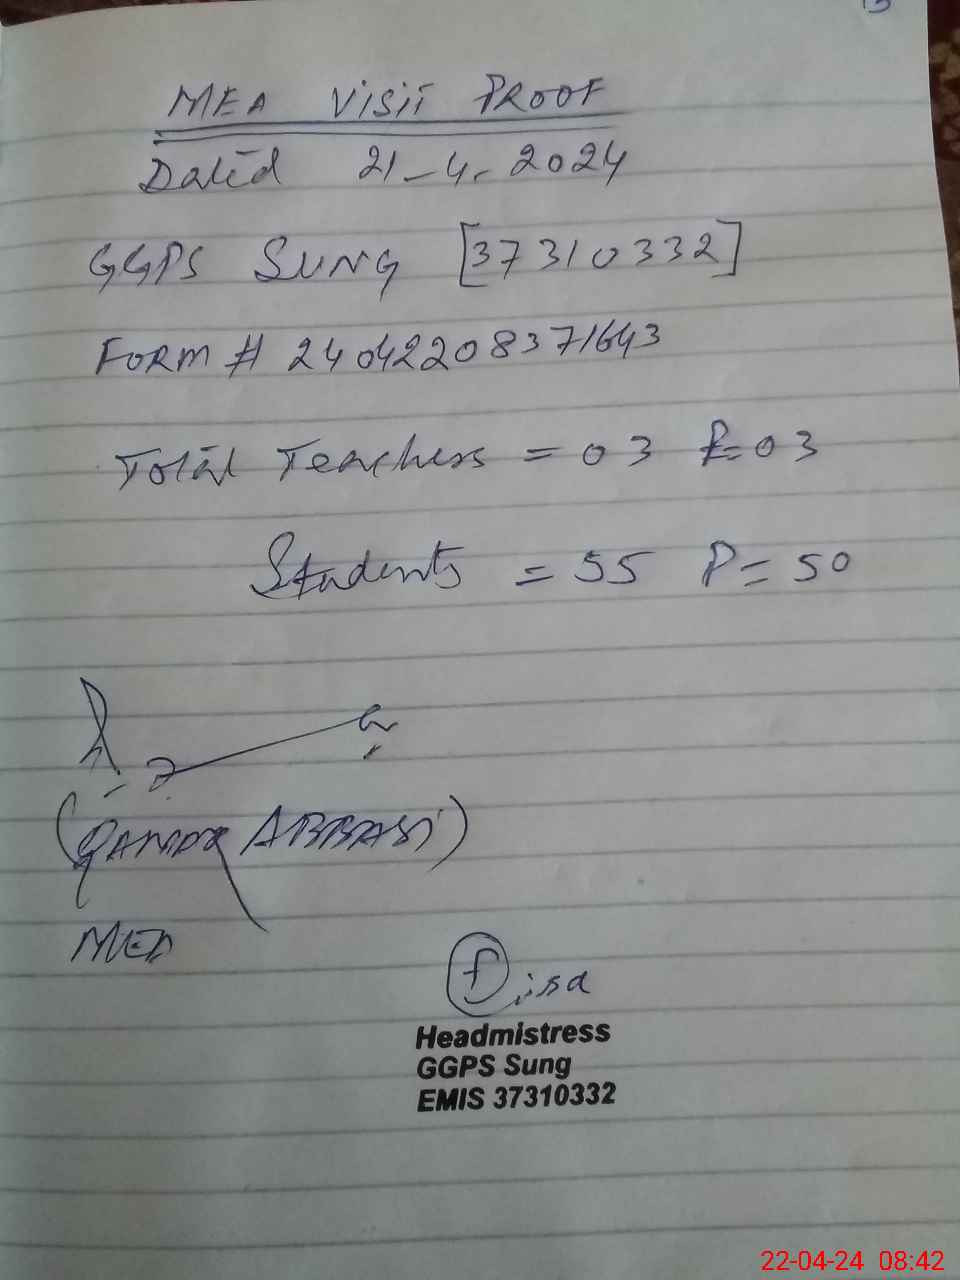 MEA Visit Proof
Dated 21-4-2024
GGPS Sung [37310332]
Form # 24042208371643
Total Teachers = 03 P=03
Students = 55 P= 50
(Qamar Abbasi)
MEA
Headmistress
GGPS Sung
EMIS 37310332
22-04-24 08:42